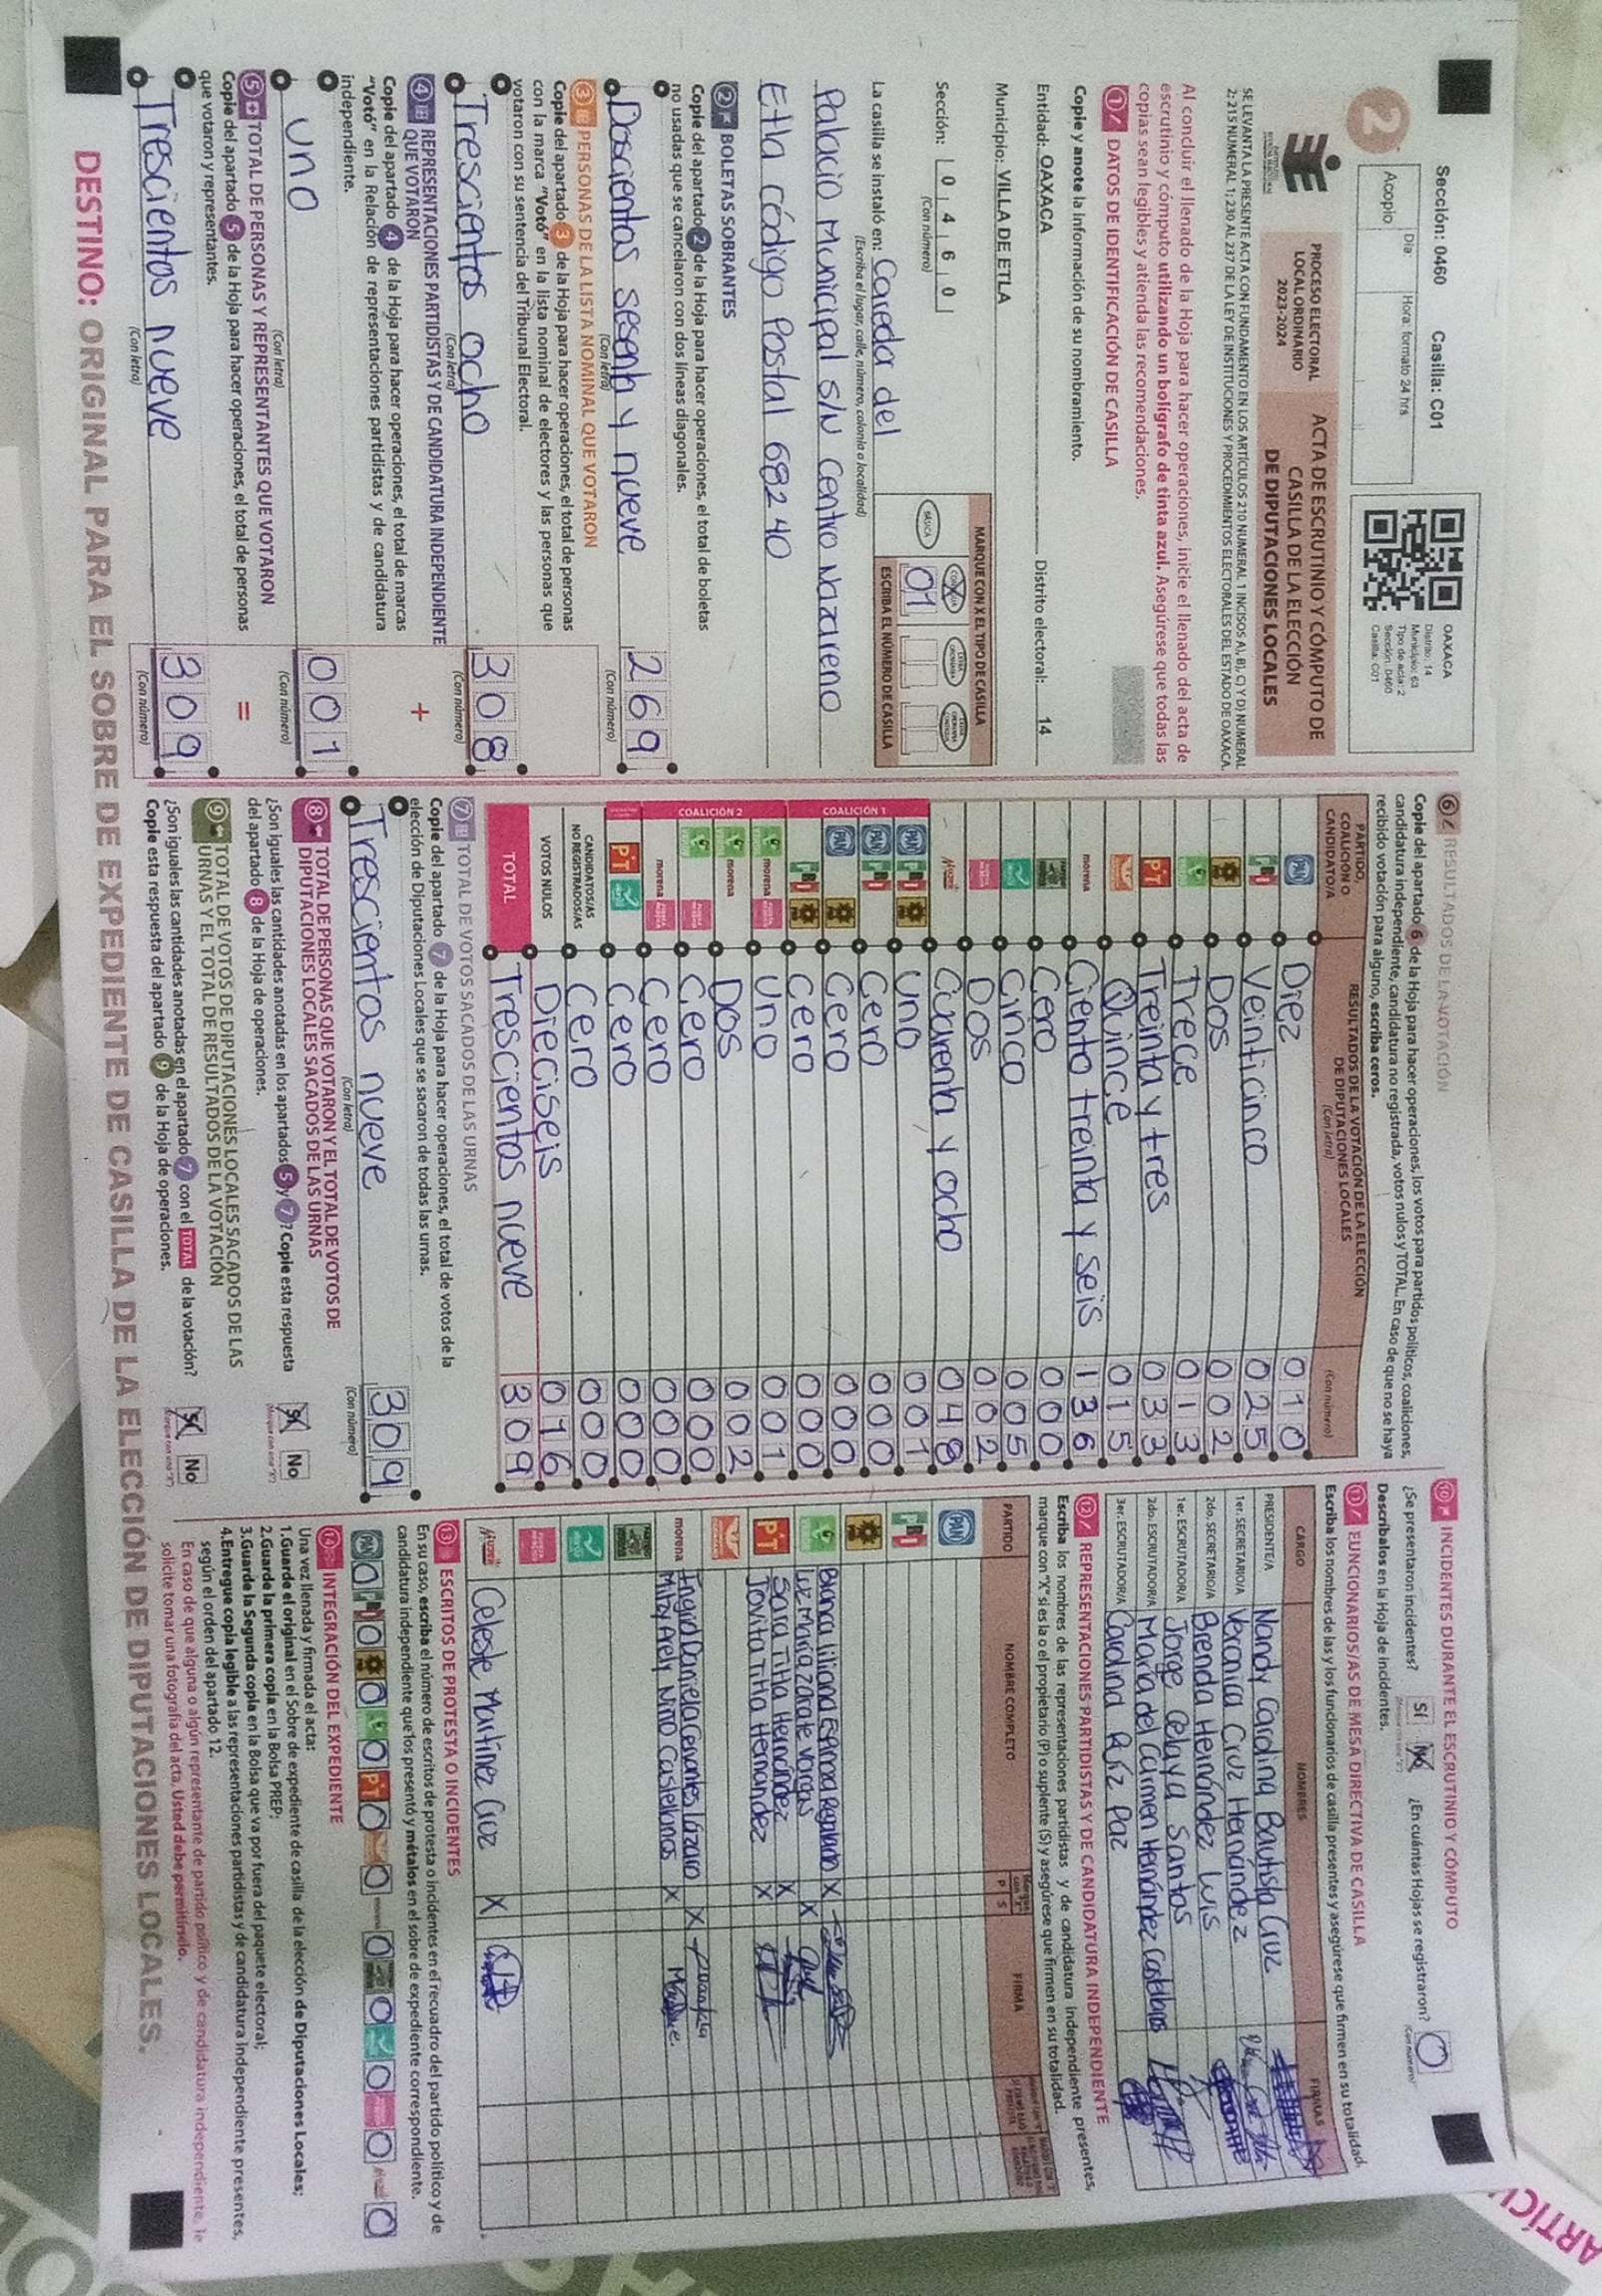 Sección: 0460 Casilla: C01
2
Acopio
Día:
Hora: formato 24 hrs
OAXACA
Distrito: 14
Municipio: 63
Tipo de acta: 2
Sección: 0460
Casilla: C01
PROCESO ELECTORAL
LOCAL ORDINARIO
2023-2024
ACTA DE ESCRUTINIO Y CÓMPUTO DE
CASILLA DE LA ELECCIÓN
DE DIPUTACIONES LOCALES
SE LEVANTA LA PRESENTE ACTA CON FUNDAMENTO EN LOS ARTÍCULOS 210 NUMERAL 1 INCISOS A), B), C) Y D) NUMERAL
2; 215 NUMERAL 1; 230 AL 237 DE LA LEY DE INSTITUCIONES Y PROCEDIMIENTOS ELECTORALES DEL ESTADO DE OAXACA.
Al concluir el llenado de la Hoja para hacer operaciones, inicie el llenado del acta de
escrutinio y cómputo utilizando un bolígrafo de tinta azul. Asegúrese que todas las
copias sean legibles y atienda las recomendaciones.
1 DATOS DE IDENTIFICACIÓN DE CASILLA
Copie y anote la información de su nombramiento.
Entidad: OAXACA Distrito electoral: 14
Municipio: VILLA DE ETLA
Sección: 0460
(Con número)
MARQUE CON X EL TIPO DE CASILLA
BÁSICA
ESCRIBA EL NÚMERO DE CASILLA
01
La casilla se instaló en: Corredor del
(Escriba el lugar, calle, número, colonia o localidad)
Palacio Municipal S/N Centro Nazareno
Etla código Postal 68240
2 BOLETAS SOBRANTES
Copie del apartado 2 de la Hoja para hacer operaciones, el total de boletas
no usadas que se cancelaron con dos líneas diagonales.
Doscientos sesenta y nueve 269
(Con letra) (Con número)
3 PERSONAS DE LA LISTA NOMINAL QUE VOTARON
Copie del apartado 3 de la Hoja para hacer operaciones, el total de personas
con la marca "Votó" en la lista nominal de electores y las personas que
votaron con su sentencia del Tribunal Electoral.
Trescientos ocho 308
(Con letra) (Con número)
4 REPRESENTACIONES PARTIDISTAS Y DE CANDIDATURA INDEPENDIENTE
QUE VOTARON
+
Copie del apartado 4 de la Hoja para hacer operaciones, el total de marcas
"Votó" en la Relación de representaciones partidistas y de candidatura
independiente.
uno 001
(Con letra) (Con número)
5 TOTAL DE PERSONAS Y REPRESENTANTES QUE VOTARON
=
Copie del apartado 5 de la Hoja para hacer operaciones, el total de personas
que votaron y representantes.
Trescientos nueve 309
(Con letra) (Con número)
6 RESULTADOS DE LA VOTACIÓN
Copie del apartado 6 de la Hoja para hacer operaciones, los votos para partidos políticos, coaliciones,
candidatura independiente, candidatura no registrada, votos nulos y TOTAL. En caso de que no se haya
recibido votación para alguno, escriba ceros.
PARTIDO,
COALICIÓN O
CANDIDATO/A
RESULTADOS DE LA VOTACIÓN DE LA ELECCIÓN
DE DIPUTACIONES LOCALES
(Con letra)
(Con número)
PAN Diez 010
PRI Veinticinco 025
PRD Dos 002
Trece 013
PT Treinta y tres 033
Quince 015
morena Ciento treinta y seis 136
Cero 000
Cinco 005
Dos 002
Cuarenta y ocho 048
COALICIÓN 1
PAN PRI PRD uno 001
PAN PRI Cero 000
PAN PRD Cero 000
PRI PRD Cero 000
COALICIÓN 2
morena uno 001
morena Dos 002
Cero 000
morena Cero 000
PT Cero 000
CANDIDATOS/AS
NO REGISTRADOS/AS
Cero 000
VOTOS NULOS Dieciseis 016
TOTAL Trescientos nueve 309
7 TOTAL DE VOTOS SACADOS DE LAS URNAS
Copie del apartado 7 de la Hoja para hacer operaciones, el total de votos de la
elección de Diputaciones Locales que se sacaron de todas las urnas.
Trescientos nueve 309
(Con letra) (Con número)
8 TOTAL DE PERSONAS QUE VOTARON Y EL TOTAL DE VOTOS DE
DIPUTACIONES LOCALES SACADOS DE LAS URNAS
¿Son iguales las cantidades anotadas en los apartados 5 y 7? Copie esta respuesta
del apartado 8 de la Hoja de operaciones.
Sí No
9 TOTAL DE VOTOS DE DIPUTACIONES LOCALES SACADOS DE LAS
URNAS Y EL TOTAL DE RESULTADOS DE LA VOTACIÓN
¿Son iguales las cantidades anotadas en el apartado 7 con el TOTAL de la votación?
Copie esta respuesta del apartado 9 de la Hoja de operaciones.
Sí No
10 INCIDENTES DURANTE EL ESCRUTINIO Y CÓMPUTO
¿Se presentaron incidentes? Sí No ¿En cuántas Hojas se registraron? 0
(Con número)
Descríbalos en la Hoja de incidentes.
11 FUNCIONARIOS/AS DE MESA DIRECTIVA DE CASILLA
Escriba los nombres de las y los funcionarios de casilla presentes y asegúrese que firmen en su totalidad.
CARGO NOMBRES FIRMAS
PRESIDENTE/A Nandy Carolina Bautista Cruz
1er. SECRETARIO/A Veronica Cruz Hernández
2do. SECRETARIO/A Brenda Hernández Luis
1er. ESCRUTADOR/A Jorge Celaya Santos
2do. ESCRUTADOR/A María del Carmen Hernández Castellanos
3er. ESCRUTADOR/A Carolina Ruíz Paz
12 REPRESENTACIONES PARTIDISTAS Y DE CANDIDATURA INDEPENDIENTE
Escriba los nombres de las representaciones partidistas y de candidatura independiente presentes,
marque con "X" si es la o el propietario (P) o suplente (S) y asegúrese que firmen en su totalidad.
PARTIDO NOMBRE COMPLETO P S FIRMA
PAN
PRI
PRD
Blanca Liliana Espinoza Regalado X
Luz María Zárate Vargas X
PT Sara Titta Hernández X
Jovita Titta Hernandez X
morena Ingrid Daniela Cervantes Lázaro X
Mitzy Arely Niño Castellanos X
Celeste Martínez Cruz X
13 ESCRITOS DE PROTESTA O INCIDENTES
En su caso, escriba el número de escritos de protesta o incidentes en el recuadro del partido político y de
candidatura independiente que los presentó y métalos en el sobre de expediente correspondiente.
PAN 0 PRI 0 PRD 0 0 PT 0 0 morena 0 0 0 0 0
14 INTEGRACIÓN DEL EXPEDIENTE
Una vez llenada y firmada el acta:
1.Guarde el original en el Sobre de expediente de casilla de la elección de Diputaciones Locales;
2.Guarde la primera copia en la Bolsa PREP;
3.Guarde la Segunda copia en la Bolsa que va por fuera del paquete electoral;
4.Entregue copia legible a las representaciones partidistas y de candidatura independiente presentes,
según el orden del apartado 12.
En caso de que alguna o algún representante de partido político y de candidatura independiente, le
solicite tomar una fotografía del acta, Usted debe permitírselo.
DESTINO: ORIGINAL PARA EL SOBRE DE EXPEDIENTE DE CASILLA DE LA ELECCIÓN DE DIPUTACIONES LOCALES.